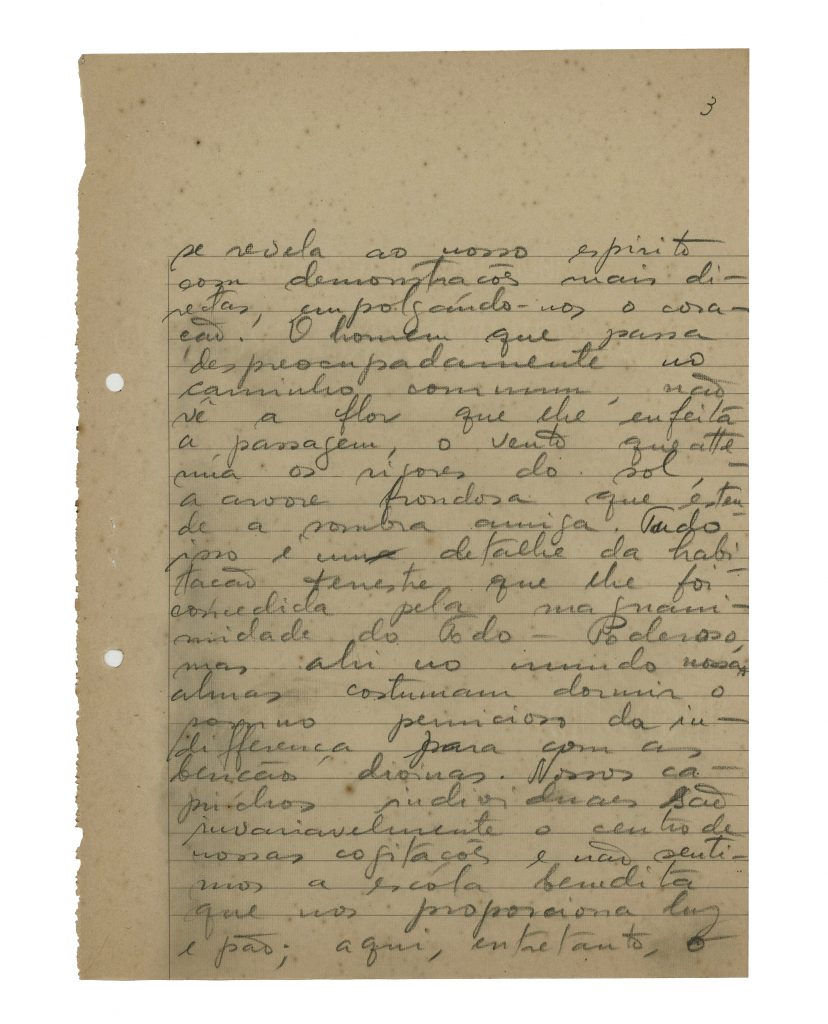 3
se revela ao nosso espirito
com demonstracões mais di-
rectas, empolgando-nos o cora-
ção. O homem que passa
despreocupadamente no
caminho commum, não
vê a flor que lhe enfeita
a passagem, o vento que atte
núa os rigores do sol, -
a arvore frondosa que esten
de a sombra amiga. Tudo
isso é um detalhe da habi
tacão terrestre que lhe foi
concedida pela magnani-
midade do Todo-Poderoso,
mas ahi no mundo nossas
almas costumam dormir o
somno pernicioso da in-
differença para com as
bencãos divinas. Nossos ca-
prichos individuaes são
invariavelmente o centro de
nossas cogitacões e não senti-
mos a escola bemdita
que nos proporciona luz
e pão; aqui, entretanto, o